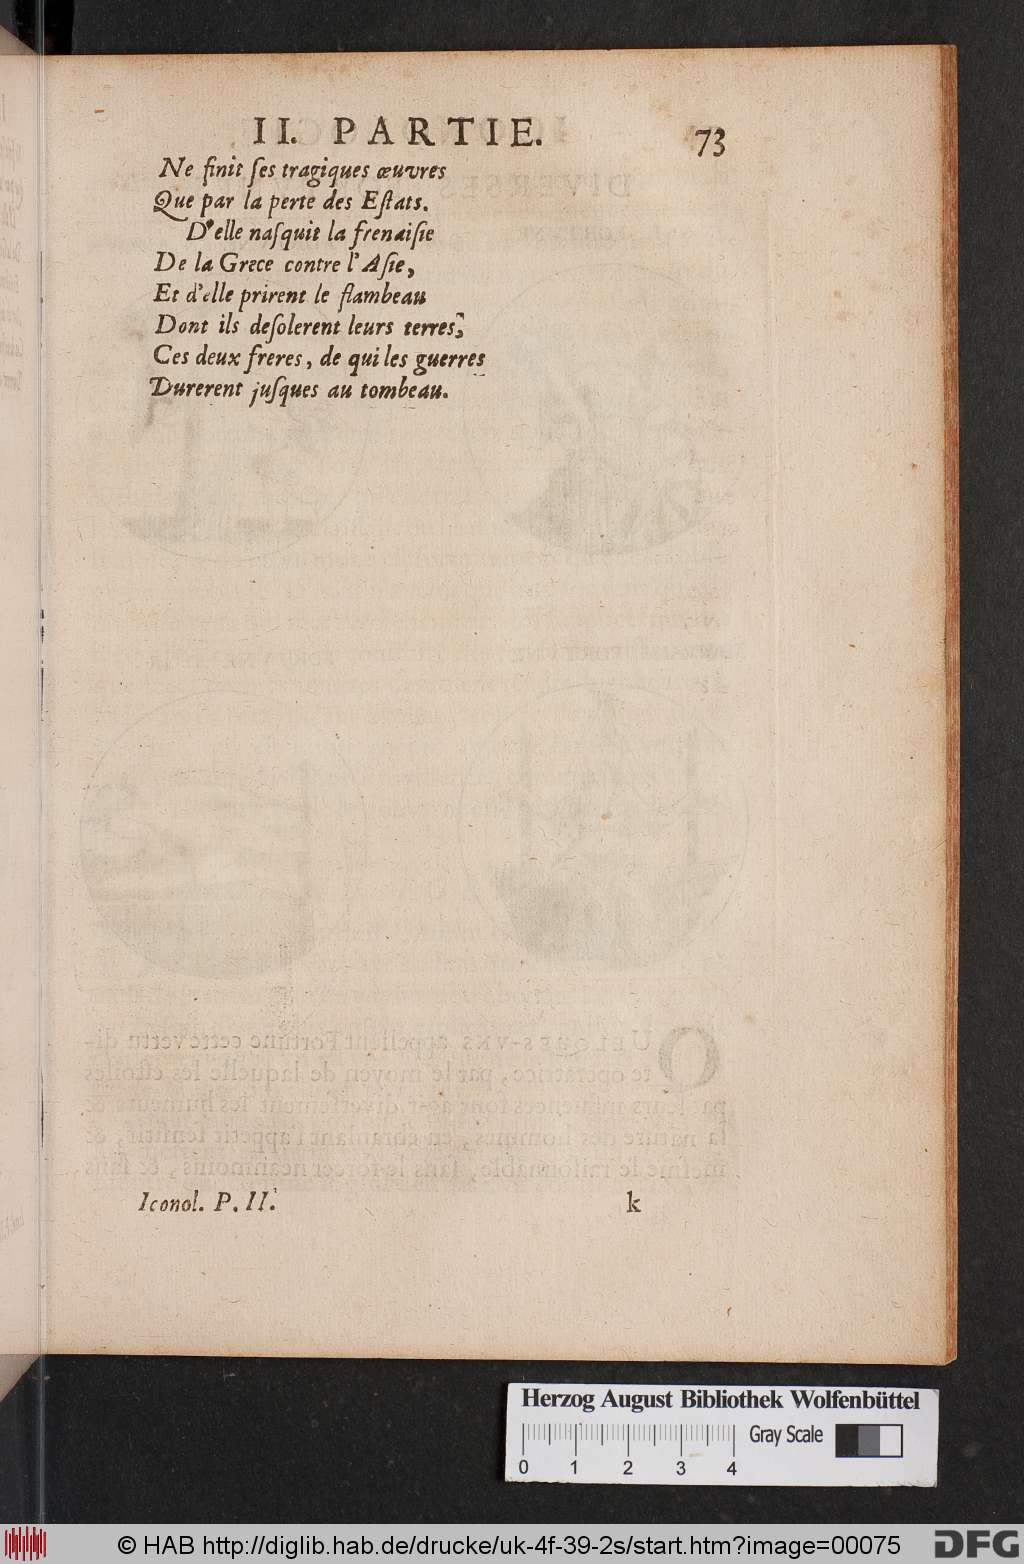 II. PARTIE.
73
Ne finit ſes tragiques œuvres
Que par la perte des Eſtats.
D'elle naſquit la frenaiſie
De la Grece contre l'Aſie,
Et d'elle prirent le flambeau
Dont ils deſolerent leurs terres,
Ces deux freres, de qui les guerres
Durerent juſques au tombeau.
Iconol. P. II.
k
Herzog August Bibliothek Wolfenbüttel
Gray Scale
0 1 2 3 4
© HAB http://diglib.hab.de/drucke/uk-4f-39-2s/start.htm?image=00075
DFG